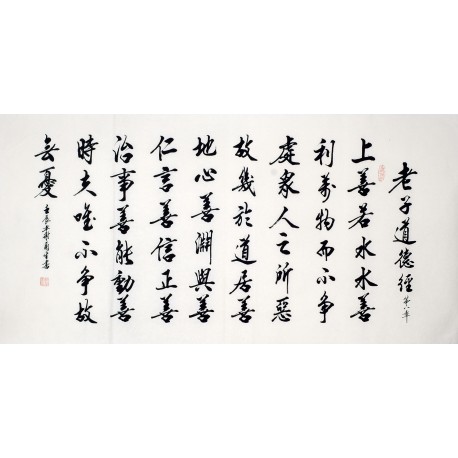 老子道德經 第八章
上善若水水善
利萬物而不争
處衆人之所惡
故幾於道居善
地心善淵與善
仁言善信正善
治事善能動善
時夫唯不争故
無憂
壬辰